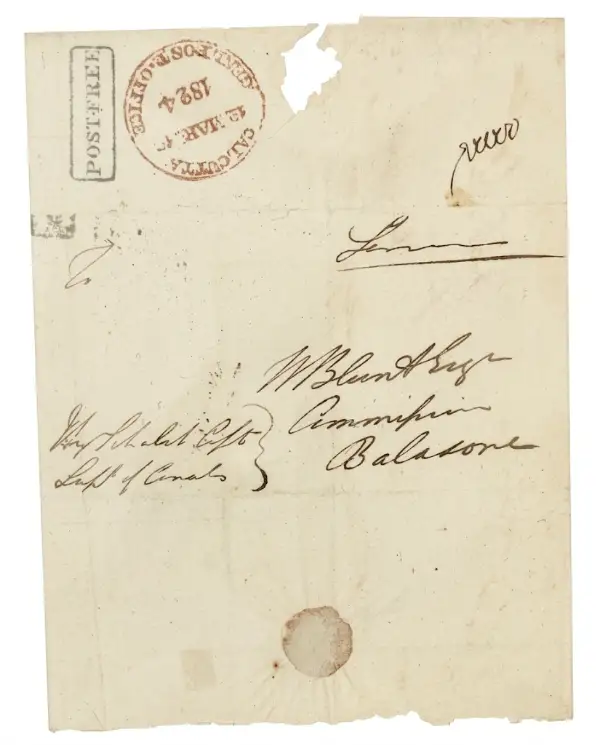 POST FREE
CALCUTTA
GENL. POST. OFFICE
12 MAR.
1824
To
W Blunt Esqr
Commissioner
Balasore
Supt. of Canals